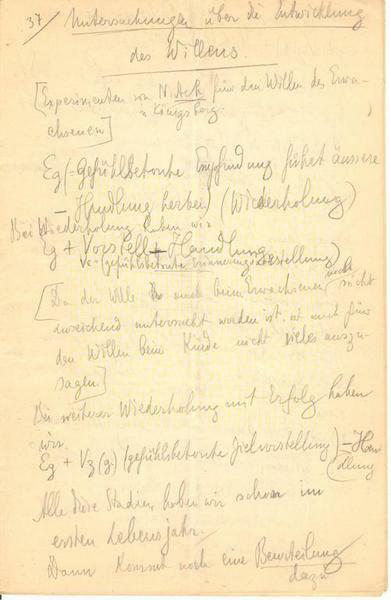 37/ Untersuchungen über die Entwicklung
des Willens.
[Experimenten von N. Ach für den Willen des Erwa-
in Königsberg.
chsenen]
Eg (-Gefühlbetonte Empfindung führt äussere
- Handlung herbei) (Wiederholung)
Bei Wiederholung haben wir
Eg + Vorstell - Handlung
Ve-(gefühlsbetonte Erinnerungsvorstellung)
[Da der Wille auch beim Erwachsenen noch nicht
ausreichend untersucht worden ist, ist auch für
den Willen beim Kinde nicht vieles auszu-
sagen]
Bei weiterer Wiederholung mit Erfolg haben
wir.
Eg + Vz(g.) (gefühlsbetonte Zielvorstellung) - Han
dlung
Alle diese Stadien haben wir schon im
ersten Lebensjahr.
Dann kommt noch eine Beurteilung
dazu